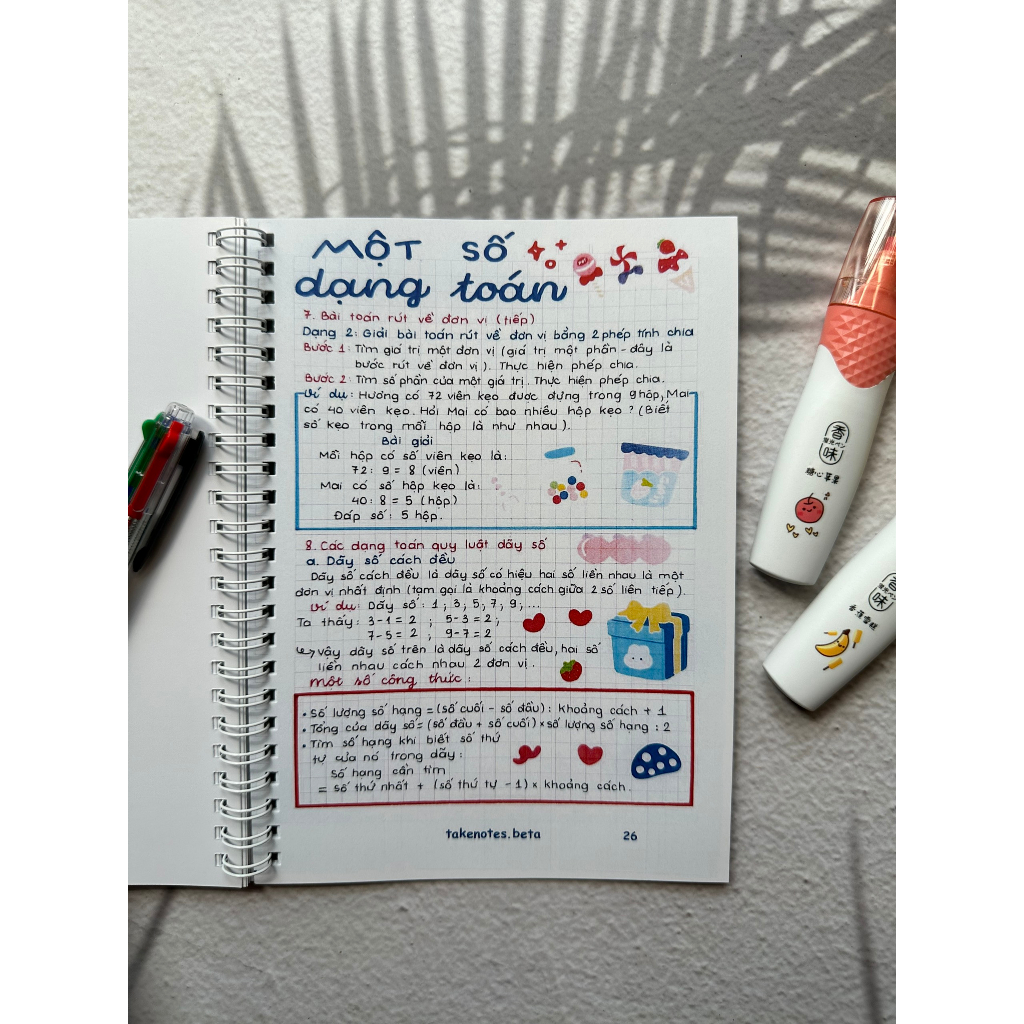 MỘT SỐ
dạng toán
7. Bài toán rút về đơn vị (tiếp)
Dạng 2: Giải bài toán rút về đơn vị bằng 2 phép tính chia
Bước 1: Tìm giá trị một đơn vị (giá trị một phần - đây là
bước rút về đơn vị). Thực hiện phép chia.
Bước 2: Tìm số phần của một giá trị. Thực hiện phép chia.
Ví dụ: Hương có 72 viên kẹo được đựng trong 9 hộp, Mai
có 40 viên kẹo. Hỏi Mai có bao nhiêu hộp kẹo? (Biết
số kẹo trong mỗi hộp là như nhau).
Bài giải
Mỗi hộp có số viên kẹo là:
72 : 9 = 8 (viên)
Mai có số hộp kẹo là:
40 : 8 = 5 (hộp)
Đáp số: 5 hộp.
8. Các dạng toán quy luật dãy số
a. Dãy số cách đều
Dãy số cách đều là dãy số có hiệu hai số liền nhau là một
đơn vị nhất định (tạm gọi là khoảng cách giữa 2 số liên tiếp).
Ví dụ: Dãy số: 1; 3; 5; 7; 9; ...
Ta thấy: 3-1 = 2 ; 5-3 = 2;
7-5 = 2 ; 9-7 = 2
↪ Vậy dãy số trên là dãy số cách đều, hai số
liền nhau cách nhau 2 đơn vị.
Một số công thức:
• Số lượng số hạng = (số cuối - số đầu) : khoảng cách + 1
• Tổng của dãy số = (số đầu + số cuối) × số lượng số hạng : 2
• Tìm số hạng khi biết số thứ
tự của nó trong dãy:
Số hạng cần tìm
= số thứ nhất + (số thứ tự - 1) × khoảng cách.
takenotes.beta 26
香
蛍光ペン
味
糖心苹果
香
蛍光ペン
味